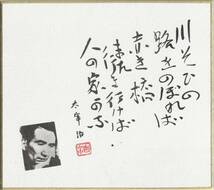 川ぞひの
路をのぼれば
赤き橋
また行けば
人の家かな
太宰治